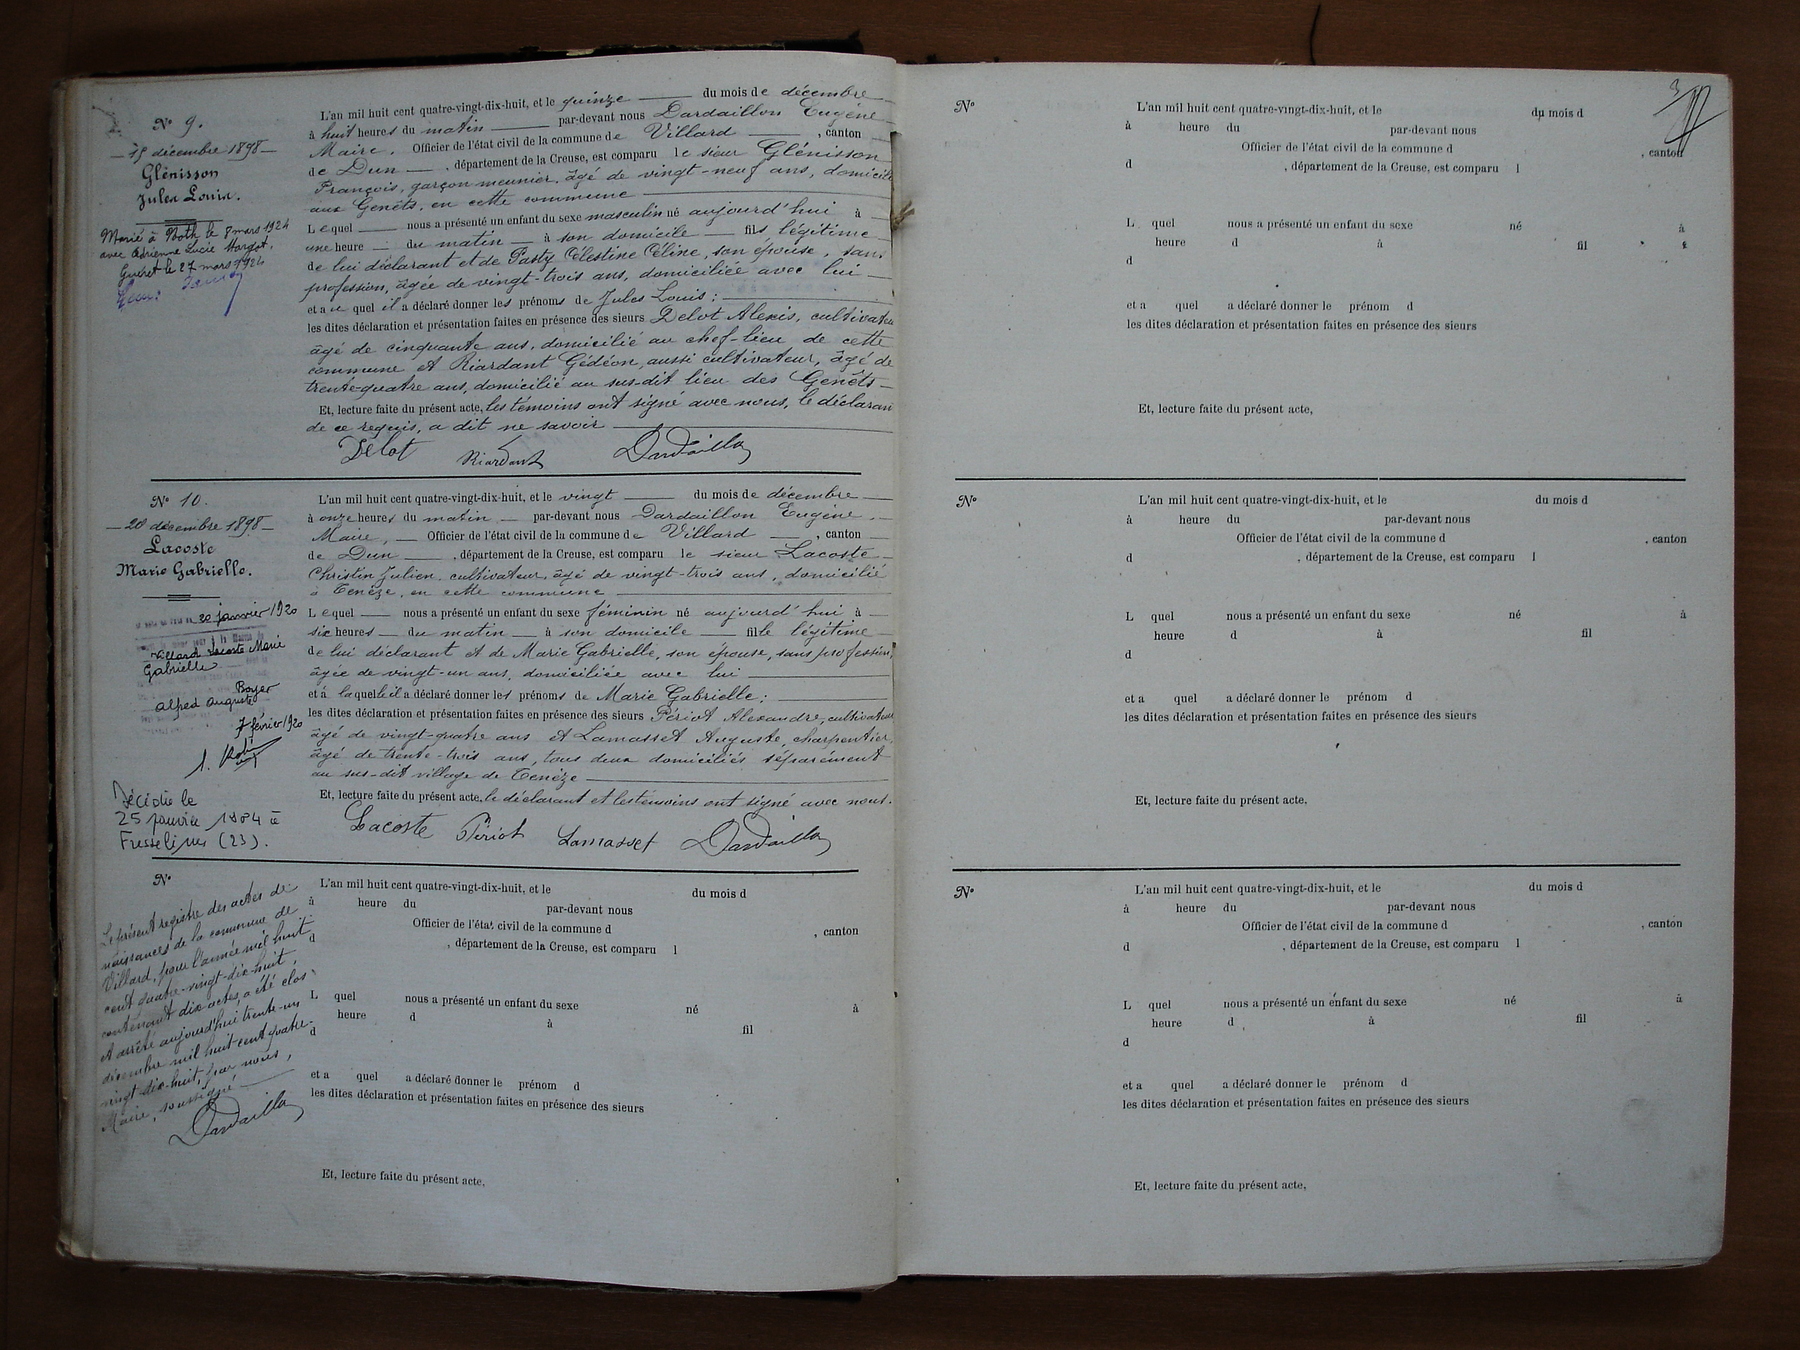 Nº 9.
15 décembre 1898
Glénisson
Jules Louis.
Marié à Noth le 8 mars 1924
avec Adrienne Lucie
Guéret le 27 mars 1924
L'an mil huit cent quatre-vingt-dix-huit, et le quinze du mois de décembre
à huit heures du matin par-devant nous Dardaillon Eugène
Maire, Officier de l'état civil de la commune de Villard, canton
de Dun, département de la Creuse, est comparu le sieur Glénisson
François, garçon meunier, âgé de vingt-neuf ans, domicilié
aux Genêts, en cette commune
Lequel nous a présenté un enfant du sexe masculin né aujourd'hui à
une heure du matin à son domicile fils légitime
de lui déclarant et de Pasty Célestine Céline, son épouse, sans
profession, âgée de vingt-trois ans, domiciliée avec lui
et au quel il a déclaré donner les prénoms de Jules Louis :
les dites déclaration et présentation faites en présence des sieurs Delot Alexis, cultivateur
âgé de cinquante ans, domicilié au chef-lieu de cette
commune et Riardant Gédéon, aussi cultivateur, âgé de
trente-quatre ans, domicilié au sus-dit lieu des Genêts
Et, lecture faite du présent acte, les témoins ont signé avec nous, le déclarant
de ce requis, a dit ne savoir
Délot Riardant Dardaillon
Nº 10.
20 décembre 1898
Lacoste
Marie Gabrielle.
30 janvier 1920
Villard Lacoste Marie
Gabrielle
Boyer
Alfred Auguste
7 février 1920
Décédée le
25 janvier 1984 à
Fresselines (23).
L'an mil huit cent quatre-vingt-dix-huit, et le vingt du mois de décembre
à onze heures du matin par-devant nous Dardaillon Eugène,
Maire, Officier de l'état civil de la commune de Villard, canton
de Dun, département de la Creuse, est comparu le sieur Lacoste
Christin Julien, cultivateur, âgé de vingt-trois ans, domicilié
à Tenèze, en cette commune
Lequel nous a présenté un enfant du sexe féminin né aujourd'hui à
six heures du matin à son domicile fille légitime
de lui déclarant et de Marie Gabrielle, son épouse, sans profession,
âgée de vingt-un ans, domiciliée avec lui
et à laquelle il a déclaré donner les prénoms de Marie Gabrielle ;
les dites déclaration et présentation faites en présence des sieurs Périot Alexandre, cultivateur
âgé de vingt-quatre ans et Lamasset Auguste, charpentier,
âgé de trente-trois ans, tous deux domiciliés séparément
au sus-dit village de Tenèze
Et, lecture faite du présent acte, le déclarant et les témoins ont signé avec nous.
Lacoste Périot Lamasset Dardaillon
Nº
Le présent registre des actes de
naissances de la commune de
Villard, pour l'année mil huit
cent quatre-vingt-dix-huit,
contenant dix actes, a été clos
et arrêté aujourd'hui trente-un
décembre mil huit cent quatre-
vingt-dix-huit, par nous,
Maire, soussigné
Dardaillon
L'an mil huit cent quatre-vingt-dix-huit, et le du mois d
à heure du par-devant nous
Officier de l'état civil de la commune d , canton
d , département de la Creuse, est comparu l
L quel nous a présenté un enfant du sexe né à
heure d à fil
d
et a quel a déclaré donner le prénom d
les dites déclaration et présentation faites en présence des sieurs
Et, lecture faite du présent acte,
3
Nº
L'an mil huit cent quatre-vingt-dix-huit, et le du mois d
à heure du par-devant nous
Officier de l'état civil de la commune d , canton
d , département de la Creuse, est comparu l
L quel nous a présenté un enfant du sexe né à
heure d à fil
d
et a quel a déclaré donner le prénom d
les dites déclaration et présentation faites en présence des sieurs
Et, lecture faite du présent acte,
Nº
L'an mil huit cent quatre-vingt-dix-huit, et le du mois d
à heure du par-devant nous
Officier de l'état civil de la commune d , canton
d , département de la Creuse, est comparu l
L quel nous a présenté un enfant du sexe né à
heure d à fil
d
et a quel a déclaré donner le prénom d
les dites déclaration et présentation faites en présence des sieurs
Et, lecture faite du présent acte,
Nº
L'an mil huit cent quatre-vingt-dix-huit, et le du mois d
à heure du par-devant nous
Officier de l'état civil de la commune d , canton
d , département de la Creuse, est comparu l
L quel nous a présenté un enfant du sexe né à
heure d à fil
d
et a quel a déclaré donner le prénom d
les dites déclaration et présentation faites en présence des sieurs
Et, lecture faite du présent acte,